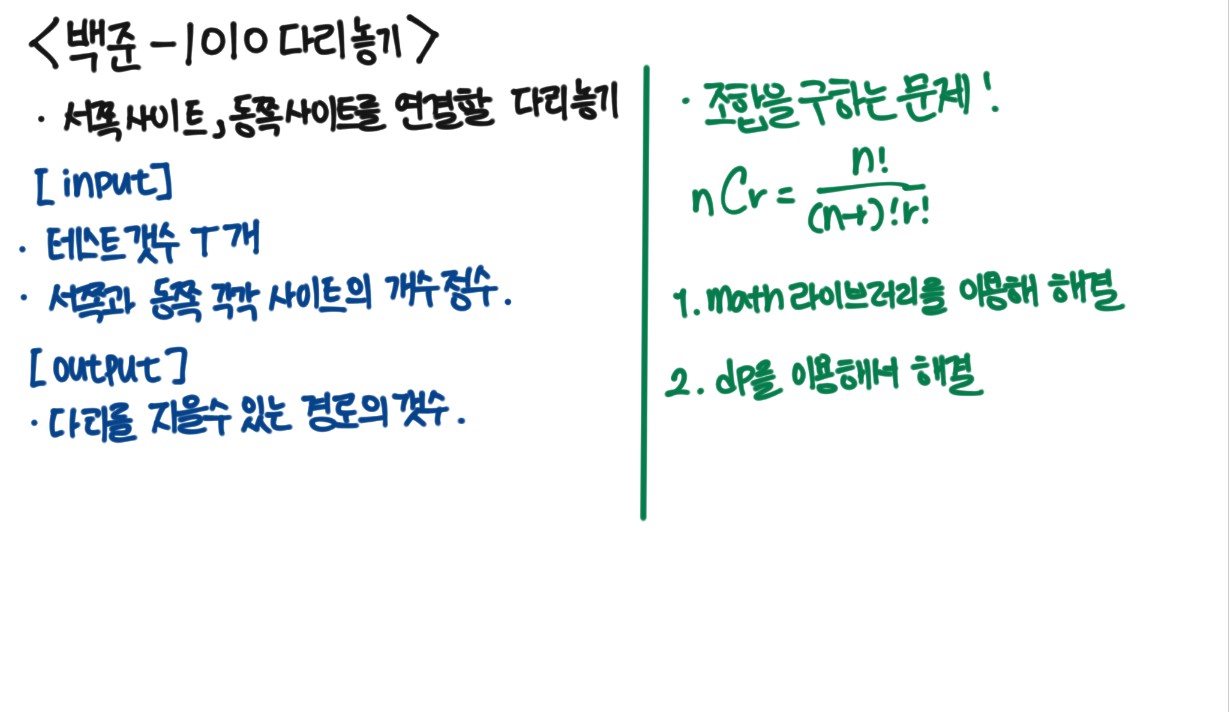 <백준 - 1010 다리놓기>
· 서쪽사이트, 동쪽사이트를 연결할 다리놓기
[input]
· 테스트갯수 T개
· 서쪽과 동쪽 각각 사이트의 개수정수.
[output]
· 다리를 지을수 있는 경로의 갯수.
· 조합을 구하는 문제!
nCr = n! / (n-r)!r!
1. math 라이브러리를 이용해 해결
2. dp를 이용해서 해결